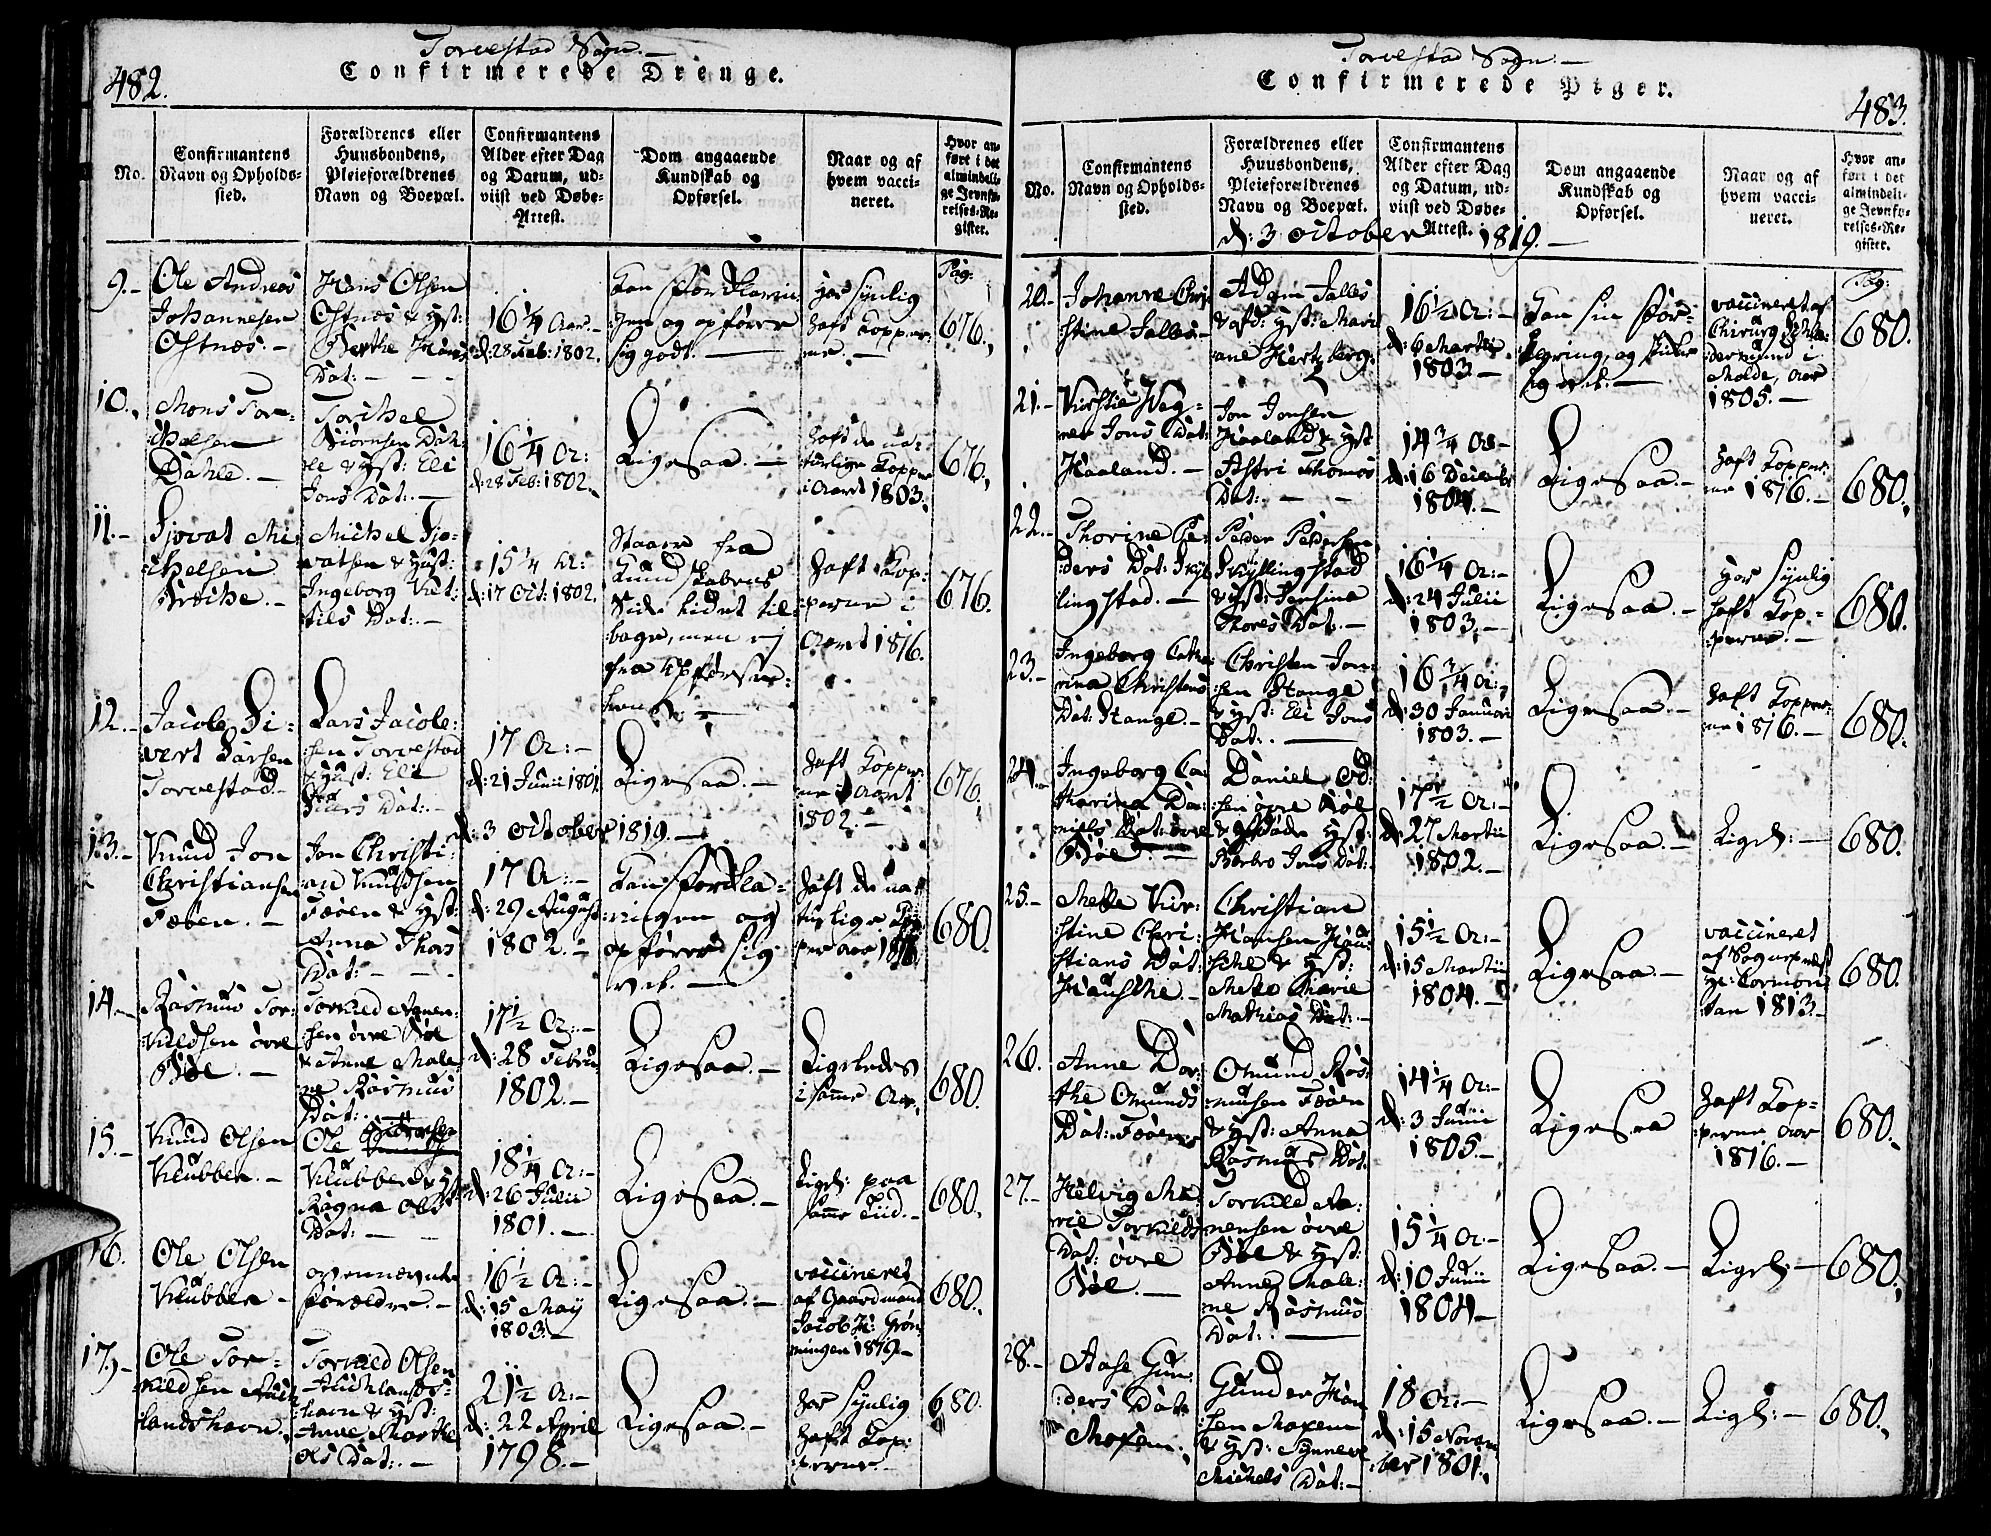 Torvestad Sogn. —
482.
Confirmerede Drenge.
No.
Confirmantens
Navn og Opholds-
sted.
Forældrenes eller
Huusbondens,
Pleieforældrenes
Navn og Boepæl.
Confirmantens
Alder efter Dag
og Datum, ud-
viist ved Døbe-
Attest.
Dom angaaende
Kundskab og
Opførsel.
Naar og af
hvem vacci-
neret.
Hvor an-
ført i det
almindeli-
ge Jevnfø-
relses-Re-
gister.
Pag:
9. —
Ole Andreas
Johannesen
Ostnæs. —
Hans Olsen
Ostnæs & Hust:
Berthe Hans
Dat: —
16 1/4 Aar. —
d: 28 Feb: 1802.
og opfører
sig godt. —
har synlig
haft Kopper-
ne. —
676.
10.
Mons Tor-
Dahle. —
Dah-
le & Hust: Eli
Jons Dat: —
16 1/4 Ar:
d: 28 Feb: 1802.
Ligesaa. —
haft de na-
turlige Kopper
i Aaret 1803.
676.
11. —
Sjovat Mi-
chelsen
Michel Sjo-
vatsen & Hust:
Ingeborg
Dat: —
15 1/4 Ar:
d: 17 Oct: 1802.
Staaer fra
Kundskabens
Side lidet til-
bage, men ej
fra Opførse-
lens. —
haft Kop-
perne i
Aaret 1816.
676.
12. —
Jacob Si-
vert Larsen
Torvestad —
Lars Jacob-
sen Torvestad
& Hust: Eli
Dat: —
17 Ar: —
d: 21 Junii 1801.
Ligesaa. —
haft Kopper-
ne i Aaret
1802. —
676.
d: 3 October 1819. —
13. —
Knud Jon
Christiansen
Føøen. —
Jon Christi-
an Knudsen
Føøen & Hust:
Anna Thors
Dat: —
17 Ar: —
d: 29 August
1802. —
og
opfører sig
vel. —
haft de na-
turlige Kop-
per Aar 1816.
680.
14. —
Rasmus Tor-
kildsen øvre
Bøe. —
Torkild Aanen-
sen øvre Bøe
& Anne Male-
ne Rasmus
Dat: —
17 1/2 Ar: —
d: 28 Februa
1802. —
Ligesaa. —
Ligeledes
i samme Aar.
680.
15. —
Knud Olsen
Klubben. —
Ole
Klubben & Hst:
Ragna Ols
Dat: —
18 1/4 Ar: —
d: 26 Julii
1801. —
Ligesaa. —
Ligel: paa
samme Tiid. —
680.
16.
Ole Olsen
Klubben —
ovennævnte
Forældre. —
16 1/2 Ar: —
d: 15 Maij
1803. —
Ligesaa. —
vaccineret
af Gaardmand
Jacob H: Grøn-
ningen 1819. —
680.
17. —
Ole Tor-
kildsen Auk-
landshavn.
Torkild Olsen
Auklands-
havn & Hst:
Anne Marthe
Ols Dat: —
21 1/2 Ar: —
d: 22 April
1798. —
Ligesaa. —
har synlig
haft Kop-
perne. —
680.
Torvestad Sogn: —
Confirmerede Piger.
483.
No.
Confirmantens
Navn og Opholds-
sted.
Forældrenes eller
Huusbondens,
Pleieforældrenes
Navn og Boepæl.
Confirmantens
Alder efter Dag
og Datum, ud-
viist ved Døbe-
Attest.
Dom angaaende
Kundskab og
Opførsel.
Naar og af
hvem vacci-
neret.
Hvor an-
ført i det
almindeli-
ge Jevnfø-
relses-Re-
gister.
d: 3 October 1819. —
Pag:
20. —
Johanne Chri-
stine Salles.
Adam Salles
& afd: Hst: Mari-
ane Hertzberg.
16 1/2 Ar: —
d: 6 Martii
1803. —
Kan sin For-
klaring, og skikker
sig vel. —
vaccineret af
Chirurg
i
Molde, Aar
1805. —
680.
21. —
Kirstie Weg-
ner Jons Dat:
Haaland. —
Jon Jonsen
Haaland & Hst
Astri Thomas
Dat: —
14 3/4 Ar —
d: 16 Decembr
1804. —
Ligesaa. —
haft Kopper-
ne 1816. —
680.
22. —
Thorine Pe-
ders Dat: Skyl-
lingstad. —
Peder Pedersen
Skyllingstad
& Hst:
Thores Dat. —
16 1/4 Ar: —
d: 24 Julii
1803. —
Ligesaa. —
har synlig
haft Kop-
perne. —
680.
23. —
Ingeborg Catha-
rina Christens
Dat: Stange. —
Christen Jon-
sen Stange
& Hst: Eli Jons
Dat: —
16 3/4 Ar:
d: 30 Januar
1803. —
Ligesaa. —
haft Kopper-
ne 1816. —
680.
24.
Ingeborg Ca-
tharina Da-
niels Dat: øvre
Bøe. —
Daniel Od-
sen øvre Bøe
& Hst:
Barbro Jons Dat:
17 1/2 Ar: —
d: 27 Martii
1802. —
Ligesaa. —
Ligel: —
680.
25. —
Mette Kir-
stine Chri-
stians Dat:
Hauske. —
Christian
Hansen Hau-
ske & Hst:
Mette Marie
Mathias Dat: —
15 1/2 Ar: —
d: 15 Martii
1804. —
Ligesaa. —
vaccineret
af Sognepræst
Hr: Cormon-
tan 1813. —
680.
26.
Anne Dor-
the Omunds
Dat: Føøen
Omund Ras-
musen Føøen
& Hst: Anna
Rasmus Dat:
14 1/4 Ar: —
d: 3 Junii
1805. —
Ligesaa
haft Kop-
perne Aar
1816. —
680.
27. —
Helvig Ma-
rie Torkilds
Dat: øvre
Bøe. —
Torkild Aa-
nensen øvre
Bøe & Hst:
Anne Male-
ne Rasmus
Dat: —
15 1/4 Ar: —
d: 10 Junii
1804 —
Ligesaa. —
Ligel: —
680.
28. —
Aase Gun-
ders Dat:
Gunder Han-
sen
& Hst: Synneve
Michels Dat: —
18 Ar: —
d: 15 Novem-
ber 1801.
Ligesaa. —
Ligel: —
680.